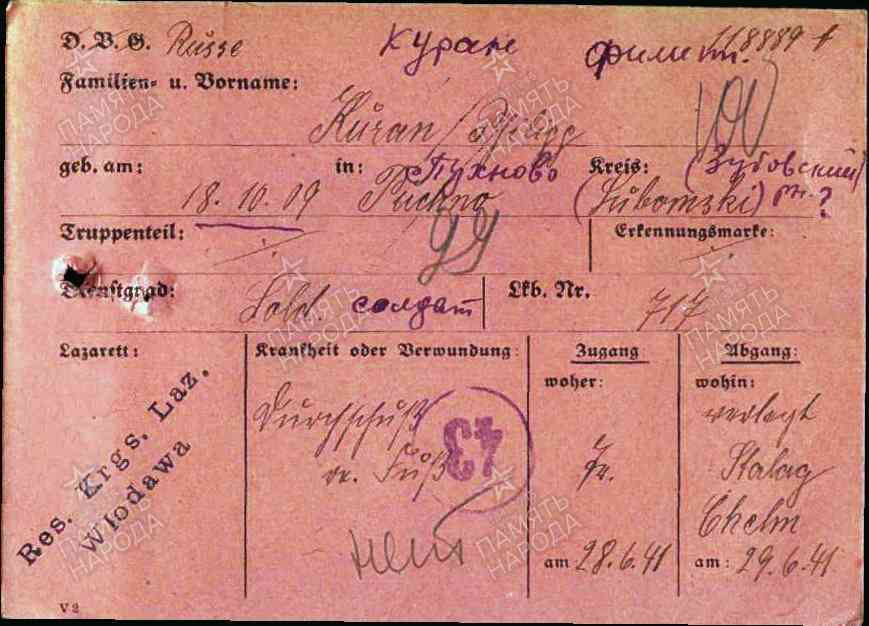 D. V. G. Russe Куран Филипп. 118889
Familien- u. Vorname:
Kuran / Philipp
geb. am: in: Пухново Kreis: (Зубовский)
18. 10. 09 Puchno (Lubomski) рн.?
Truppenteil: Erkennungsmarke:
99
Dienstgrad: Sold. солдат Lkb. Nr. 717
Lazarett: Krankheit oder Verwundung: Zugang Abgang:
woher: wohin:
Res. Krgs. Laz.
Wlodawa
Durchschuß
r. Fuß
43
Fr.
verlegt
Stalag
Chelm
am 28.6.41 am: 29.6.41
V 2
ПАМЯТЬ
НАРОДА